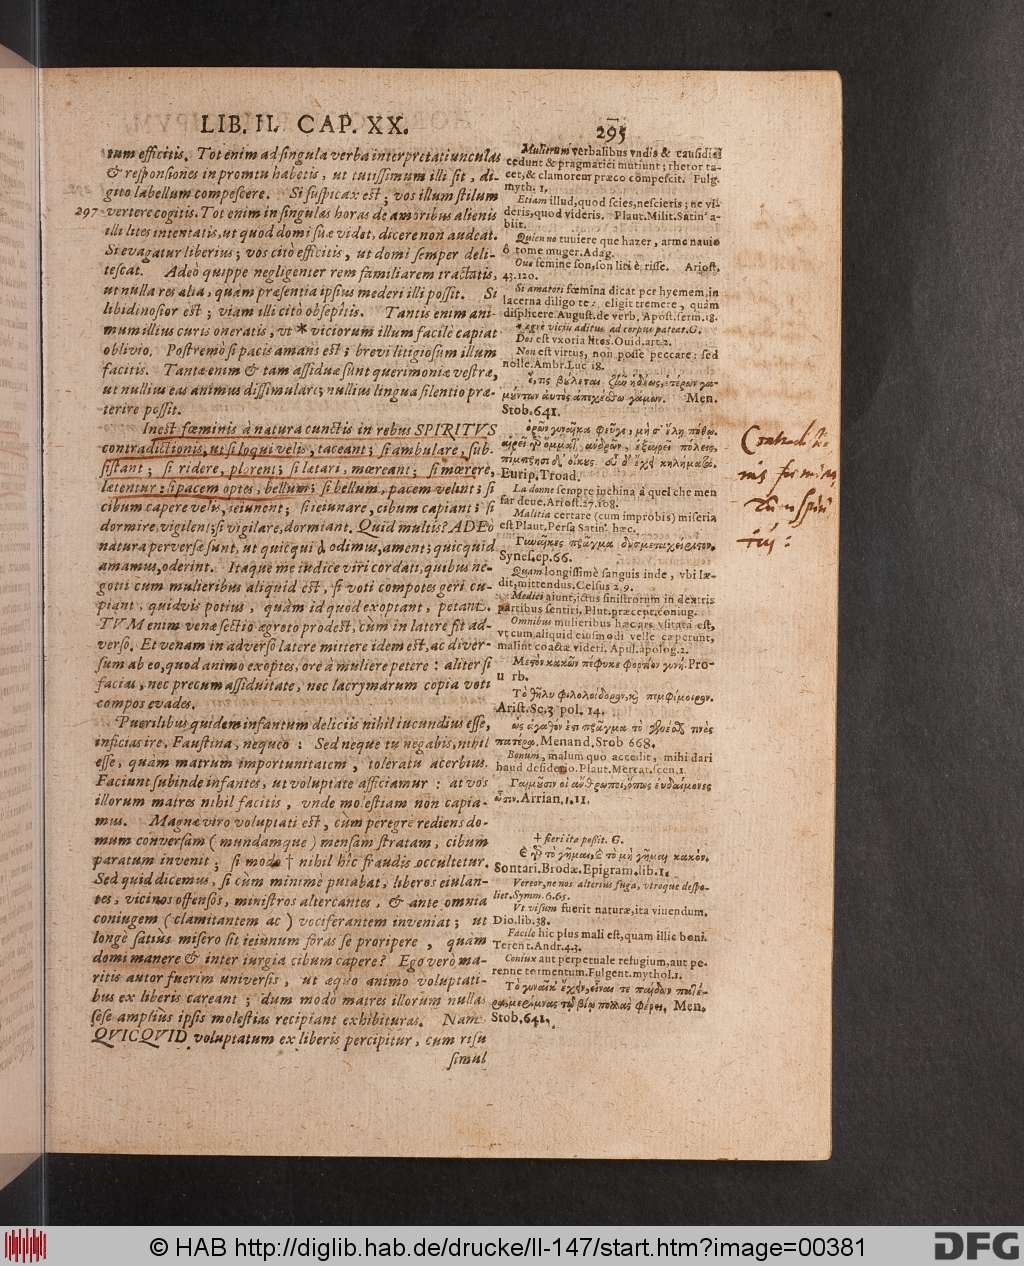 LIB. II. CAP. XX.
295
tum efficitis. Tot enim ad singula verba interpretatiunculas
& responsiones in promtu habetis, ut tutissimum illi sit, di-
gito labellum compescere. Si suspicax est; vos illum stilum
297 vertere cogitis. Tot enim in singulas horas de amoribus alienis
illi lites intentatis, ut quod domi suæ videt, dicere non audeat.
Si evagatur liberius; vos citò efficitis, ut domi semper deli-
tescat. Adeò quippe negligenter rem familiarem tractatis,
ut nulla res alia, quàm præsentia ipsius mederi illi possit. Si
libidinosior est; viam illi citò obsepitis. Tantis enim ani-
mum illius curis oneratis, vt * viciorum illum facilè capiat
oblivio. Postremò si pacis amans est; brevi litigiosum illum
facitis. Tantæ enim & tam assiduæ sunt querimoniæ vestræ,
ut nullius eas animus dissimulare; nullius lingua silentio præ-
terire possit.
Inest fœminis à natura cunctis in rebus SPIRITVS
contradictionis, ut si loqui velis, taceant; si ambulare, sub-
sistant; si ridere, plorent; si lætari, mœreant; si mœrere,
lætentur: si pacem optes, bellum; si bellum, pacem velint; si
cibum capere velis, jejunent; si ieiunare, cibum capiant; si
dormire, vigilent; si vigilare, dormiant. Quid multis? ADEo
natura perversæ sunt, ut quicquid odimus, ament; quicquid
amamus, oderint. Itaque me iudice viri cordati, quibus ne-
gotii cum mulieribus aliquid est, si voti compotes geri cu-
piant, quidvis potius, quàm id quod exoptant, petant.
TVM enim venæ sectio ægroto prodest, cùm in latere fit ad-
verso. Et venam in adverso latere mittere idem est, ac diver-
sum ab eo, quod animo exoptes, ore à muliere petere: aliter si
facias, nec precum assiduitate, nec lacrymarum copia voti
compos evades.
Puerilibus quidem infantum deliciis nihil iucundius esse,
inficias ire, Faustina, nequeo: Sed neque tu negabis, nihil
esse, quàm matrum importunitatem, toleratu acerbius.
Faciunt subinde infantes, ut voluptate afficiamur: at vos
illorum matres nihil facitis, vnde molestiam non capia-
mus. Magnæ viro voluptati est, cùm peregrè rediens do-
mum conversam (mundamque) mensam stratam, cibum
paratum invenit; si modo † nihil hic fraudis occultetur.
Sed quid dicemus, si cùm minimè putabat, liberos eiulan-
tes, vicinos offensos, ministros altercantes, & ante omnia
coniugem (clamitantem ac) vociferantem inveniat; ut
longè satiùs misero sit ieiunum foras se proripere, quàm
domi manere & inter iurgia cibum capere? Ego verò ma-
ritis autor fuerim universis, ut æquo animo voluptati-
bus ex liberis careant; dum modò matres illorum nullas
sese amplius ipsis molestias recipiant exhibituras. Nam
QVICQVID voluptatum ex liberis percipitur, cum risu
simul
Mulierum verbalibus vndis & causidici
cedunt & pragmatici mutiunt; rhetor ta-
cet, & clamorem præco compescit. Fulg.
myth. 1.
Etiam illud, quod scies, nescieris; ne vi-
deris, quod videris. Plaut. Milit. Satin' a-
biit.
Quien no tuuiere que hazer, arme nauio
ô tome muger. Adag.
Oue femine son, son liti è risse. Ariost.
43. 120.
Si amatori fœmina dicat per hyemem, in
lacerna diligo te: eligit tremere, quàm
displicere. August. de verb. Apost. serm. 18.
* ægrè viciu aditus ad corpus pateat. G.
Dos est vxoria lites. Ovid. art. 2.
Non est virtus, non posse peccare: sed
nolle. Ambr. Luc 18.
Men.
Stob. 641.
Eurip. Troad.
La donne sempre inchina à quel che men
far deue. Ariost. 27. 108.
Malitia certare (cum improbis) miseria
est Plaut. Persa Satin' hæc.
Synes. ep. 66.
Quam longissimè sanguis inde, vbi læ-
dit, mittendus. Celsus 2. 9.
Medici aiunt, ictus sinistrorum in dextris
partibus sentiri. Plut. præcept. coniug.
Omnibus mulieribus hæc ars vsitata est,
vt cum aliquid eiusmodi velle cœperunt,
malint coactæ videri. Apul. apolog. 2.
Pro-
u rb.
Arist. Sc. 3 pol. 14.
Menand. Stob 668.
Bonum, malum quo accedit, mihi dari
haud desidero. Plaut. Mercat. scen. 1.
Arrian. 1. 11.
† fieri ita possit. G.
Sontari. Brodæ. Epigram. lib. 1.
Vereor, ne nos alterius fuga, utroque despo-
liet. Symm. 6. 65.
Vt visum fuerit naturæ, ita viuendum.
Dio. lib. 38.
Facile hic plus mali est, quam illic boni.
Terent. Andr. 4. 3.
Coniux aut perpetuale refugium, aut pe-
renne tormentum. Fulgent. mythol. 1.
Men.
Stob. 641.
© HAB http://diglib.hab.de/drucke/ll-147/start.htm?image=00381
DFG